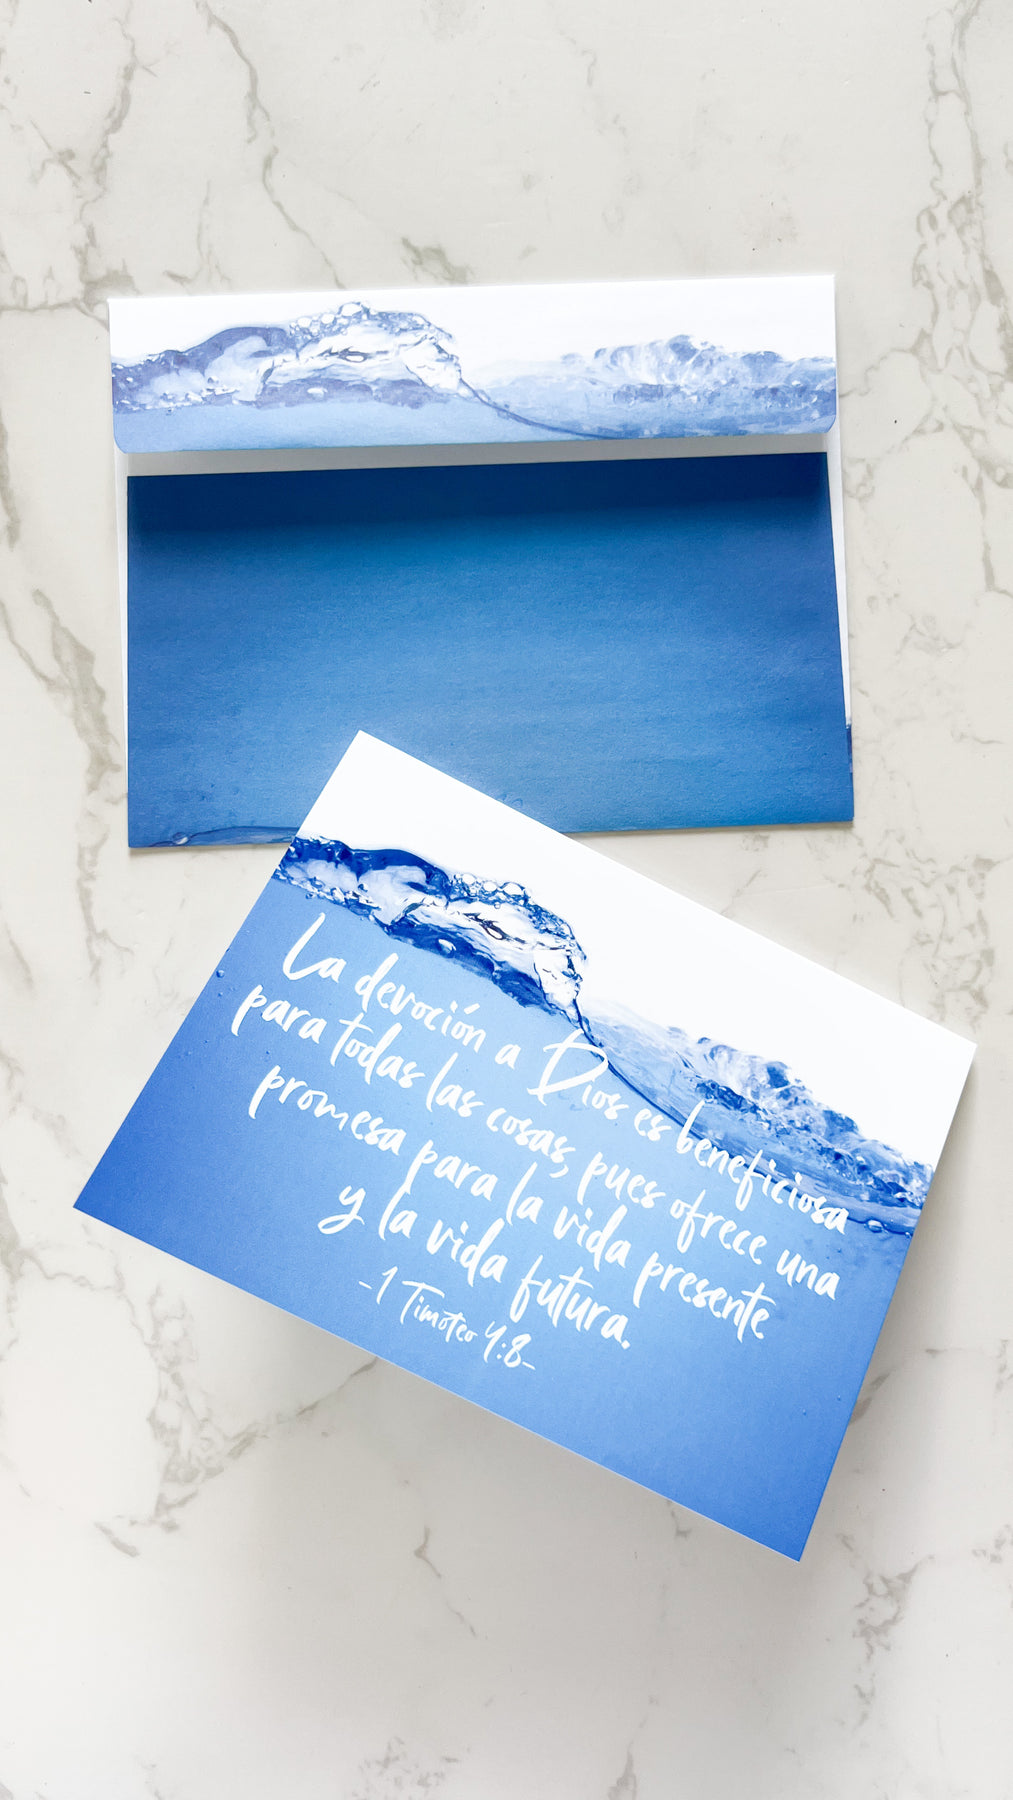 La devoción a Dios es beneficiosa
para todas las cosas, pues ofrece una
promesa para la vida presente
y la vida futura.
-1 Timoteo 4:8-